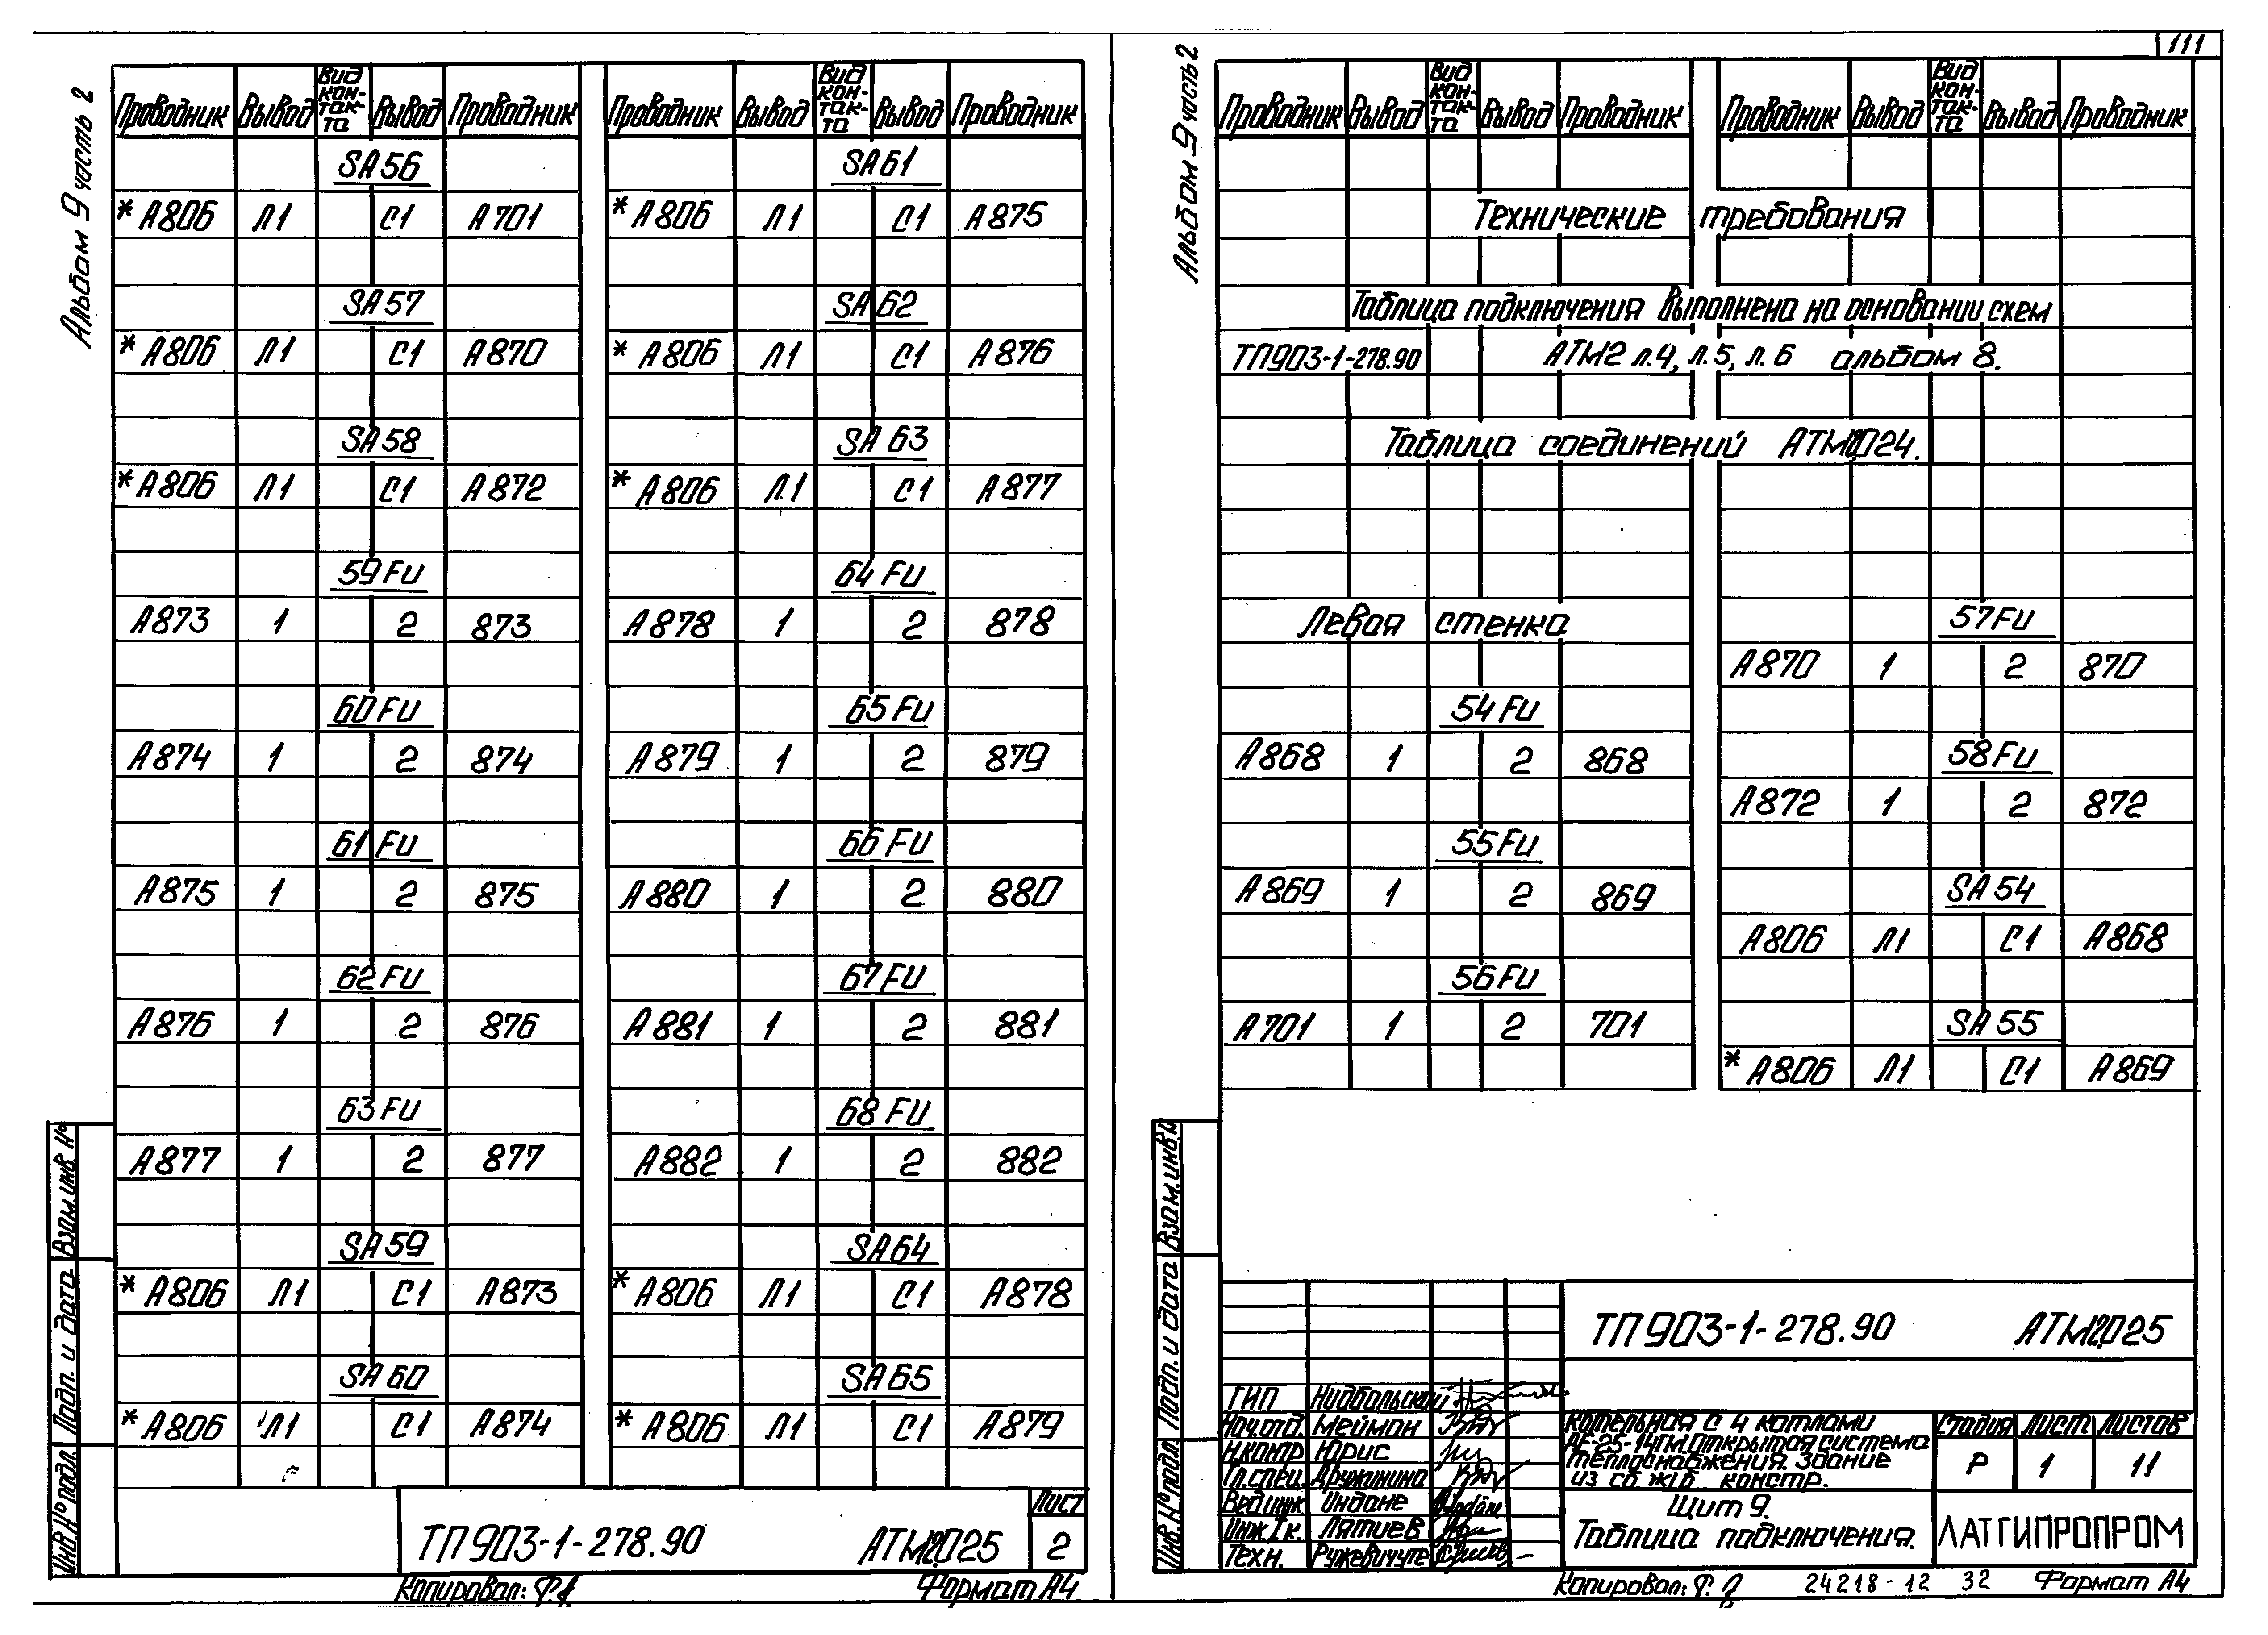 Альбом 9 часть 2
Проводник Вывод Вид контакта Вывод Проводник
SA56
*А806 Л1 С1 А701
SA57
*А806 Л1 С1 А870
SA58
*А806 Л1 С1 А872
59FU
А873 1 2 873
60FU
А874 1 2 874
61FU
А875 1 2 875
62FU
А876 1 2 876
63FU
А877 1 2 877
SA59
*А806 Л1 С1 А873
SA60
*А806 Л1 С1 А874
Проводник Вывод Вид контакта Вывод Проводник
SA61
*А806 Л1 С1 А875
SA62
*А806 Л1 С1 А876
SA63
*А806 Л1 С1 А877
64FU
А878 1 2 878
65FU
А879 1 2 879
66FU
А880 1 2 880
67FU
А881 1 2 881
68FU
А882 1 2 882
SA64
*А806 Л1 С1 А878
SA65
*А806 Л1 С1 А879
Инв.№ подл. Подп. и дата Взам.инв.№
ТП903-1-278.90 АТМ2.025
Лист
2
Копировал:
Формат А4
111
Альбом 9 часть 2
Проводник Вывод Вид контакта Вывод Проводник
Проводник Вывод Вид контакта Вывод Проводник
Технические требования
Таблица подключения выполнена на основании схем
ТП903-1-278.90 АТМ2 л.4, л.5, л.6 альбом 8.
Таблица соединений АТМ2.024.
Левая стенка
54FU
А868 1 2 868
55FU
А869 1 2 869
56FU
А701 1 2 701
57FU
А870 1 2 870
58FU
А872 1 2 872
SA54
А806 Л1 С1 А868
SA55
*А806 Л1 С1 А869
Инв.№ подл. Подп. и дата Взам.инв.№
ТП903-1-278.90 АТМ2.025
ГИП Нидбальский
Нач.отд. Мейман
Н.контр Юрис
Гл.спец. Дружинина
Вед.инж Индане
Инж.Iк. Лятиев
Техн. Ружевичуте
Котельная с 4 котлами
ДЕ-25-14ГМ.Открытая система
теплоснабжения. Здание
из сб. ж/б. констр.
Стадия Лист Листов
Р 1 11
Щит 9.
Таблица подключения.
ЛАТГИПРОПРОМ
Копировал:
24218-12 32
Формат А4